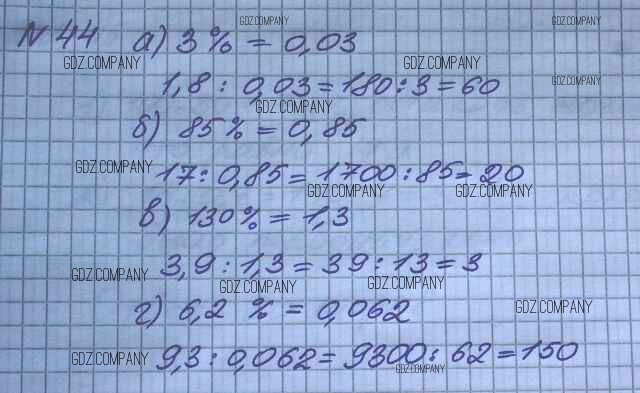 GDZ.COMPANY GDZ.COMPANY
№ 44 а) 3% = 0,03
GDZ.COMPANY GDZ.COMPANY
1,8 : 0,03 = 180 : 3 = 60
GDZ.COMPANY
GDZ.COMPANY
б) 85% = 0,85
GDZ.COMPANY
17 : 0,85 = 1700 : 85 = 20
GDZ.COMPANY GDZ.COMPANY
в) 130% = 1,3
3,9 : 1,3 = 39 : 13 = 3
GDZ.COMPANY GDZ.COMPANY GDZ.COMPANY
г) 6,2 % = 0,062
GDZ.COMPANY
9,3 : 0,062 = 9300 : 62 = 150
GDZ.COMPANY GDZ.COMPANY